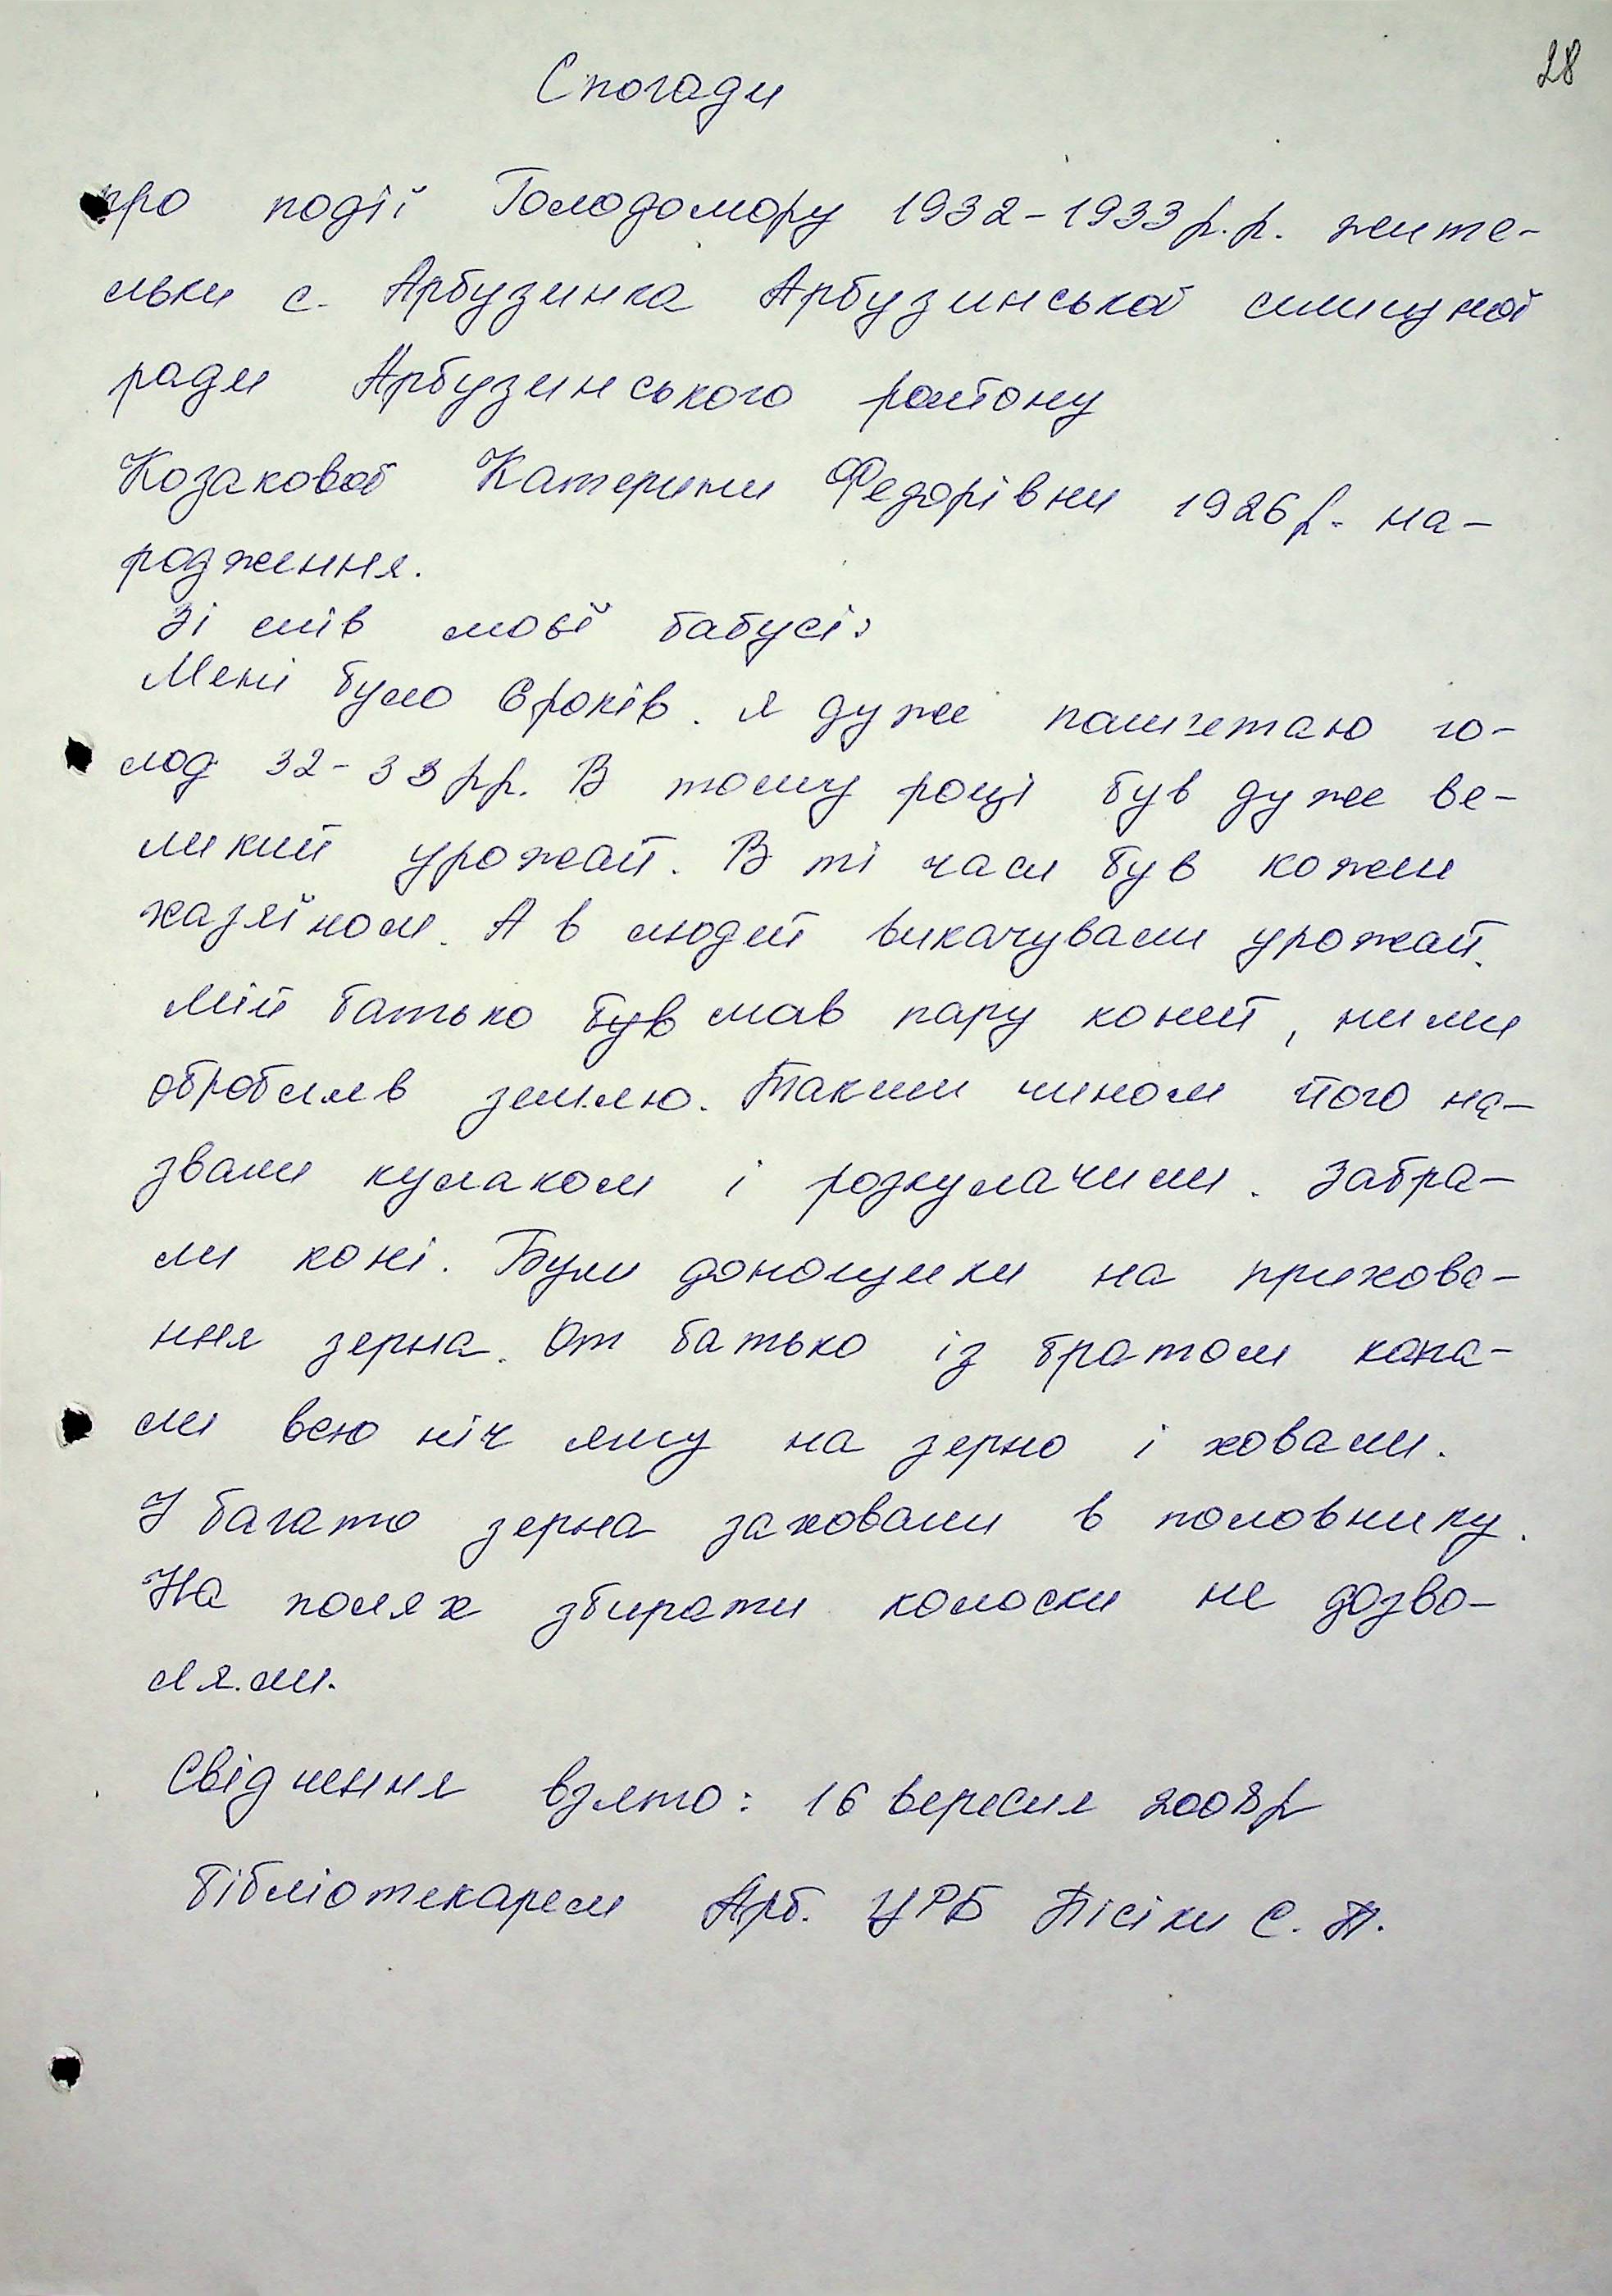 28
Спогади
про події Голодомору 1932-1933 р.р. жите-
льки с. Арбузинка Арбузинської селищної
ради Арбузинського району
Козакової Катерини Федорівни 1926 р. на-
родження.
Зі слів моєї бабусі:
Мені було 6 років. Я дуже памʼятаю го-
лод 32-33 рр. В тому році був дуже ве-
ликий урожай. В ті часи був кожен
хазяїном. А в людей викачували урожай.
Мій батько був мав пару коней, ними
обробляв землю. Таким чином його на-
звали кулаком і розкулачили. Забра-
ли коні. Були доносщики на прихова-
ння зерна. От батько із братом копа-
ли всю ніч яму на зерно і ховали.
І багато зерна заховали в половнику.
На полях збирати колоски не дозво-
ляли.
Свідчення взято: 16 вересня 2008р
бібліотекарем Арб. ЦРБ Пісіки С. П.